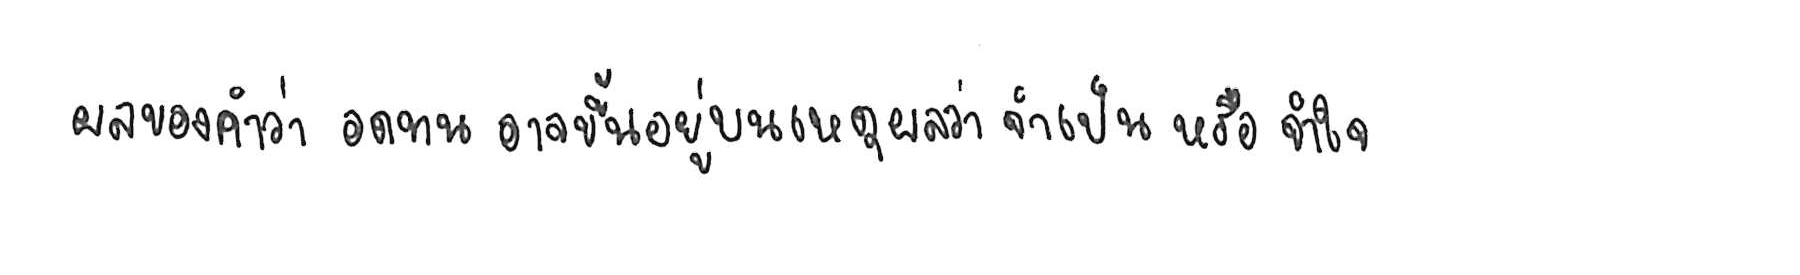 ผลของคำว่า อดทน อาจขึ้นอยู่บนเหตุผลว่า จำเป็น หรือ จำใจ